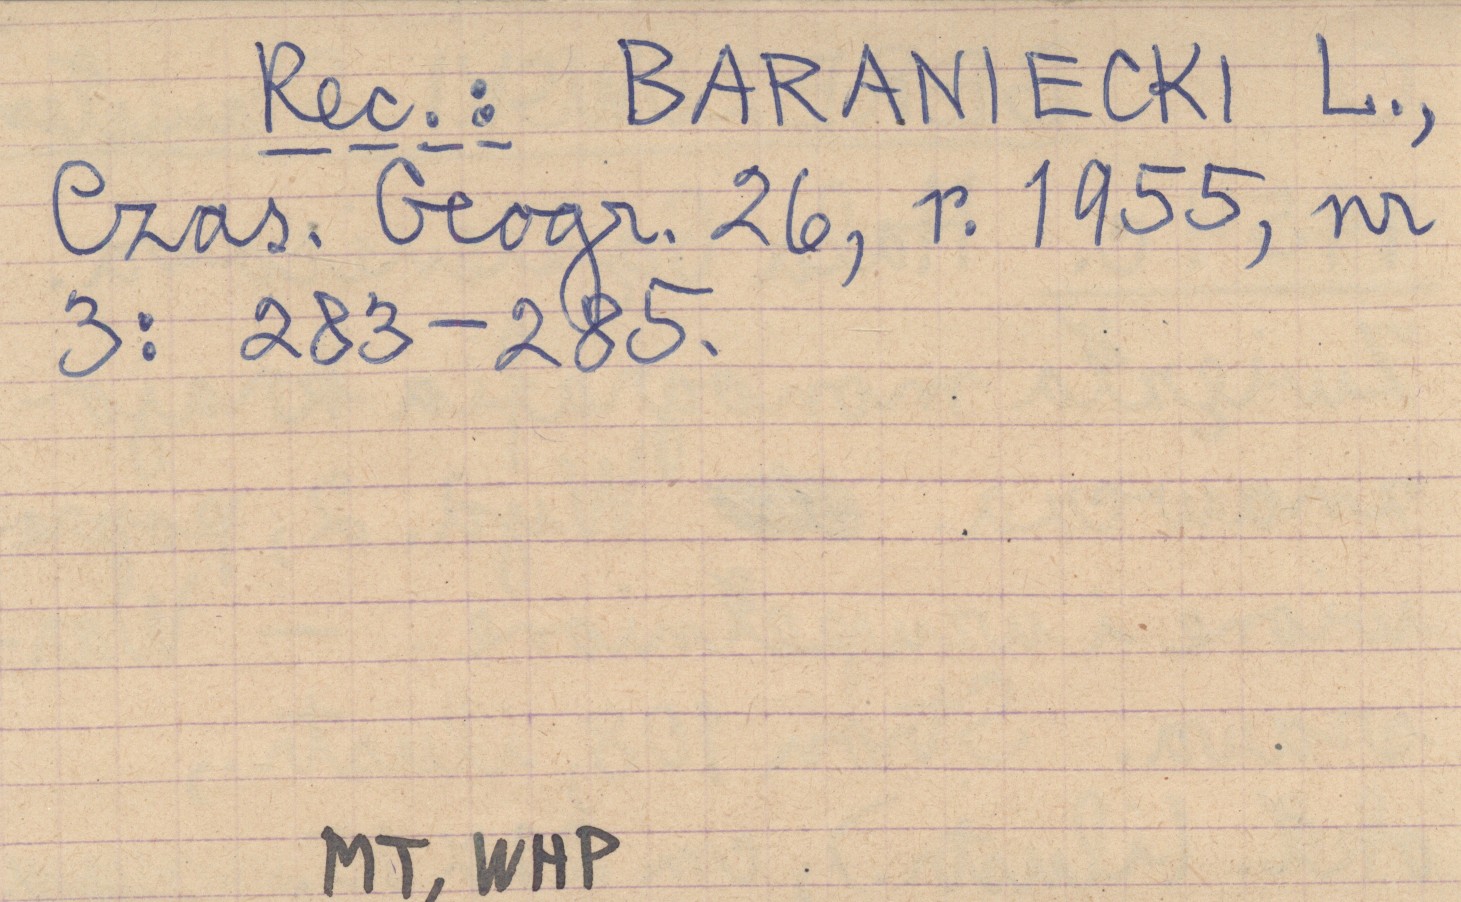 Rec.: BARANIECKI L.,
Czas. Geogr. 26, r. 1955, nr
3: 283-285.
MT, WHP